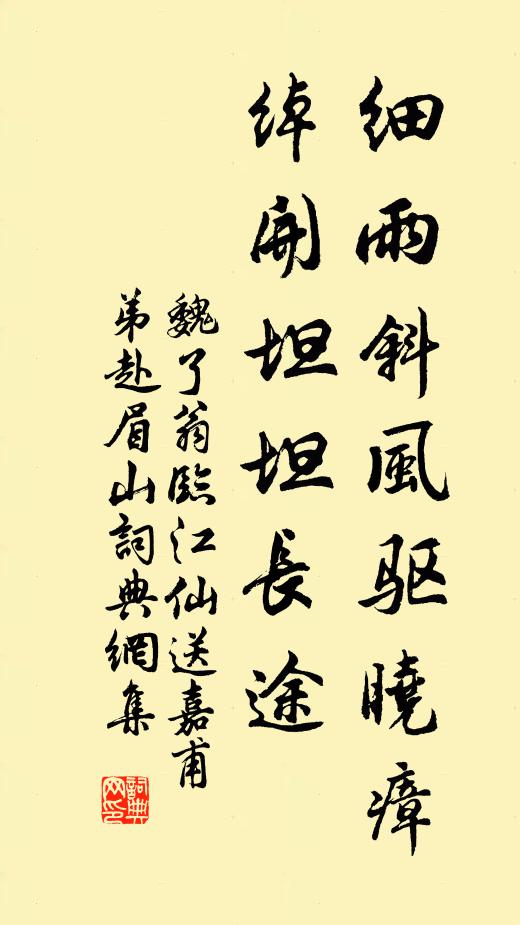 细雨斜風驱曉瘴
綽開坦坦長途
魏了翁臨江仙送嘉甫
弟赴眉山詞典網集
詞典网印